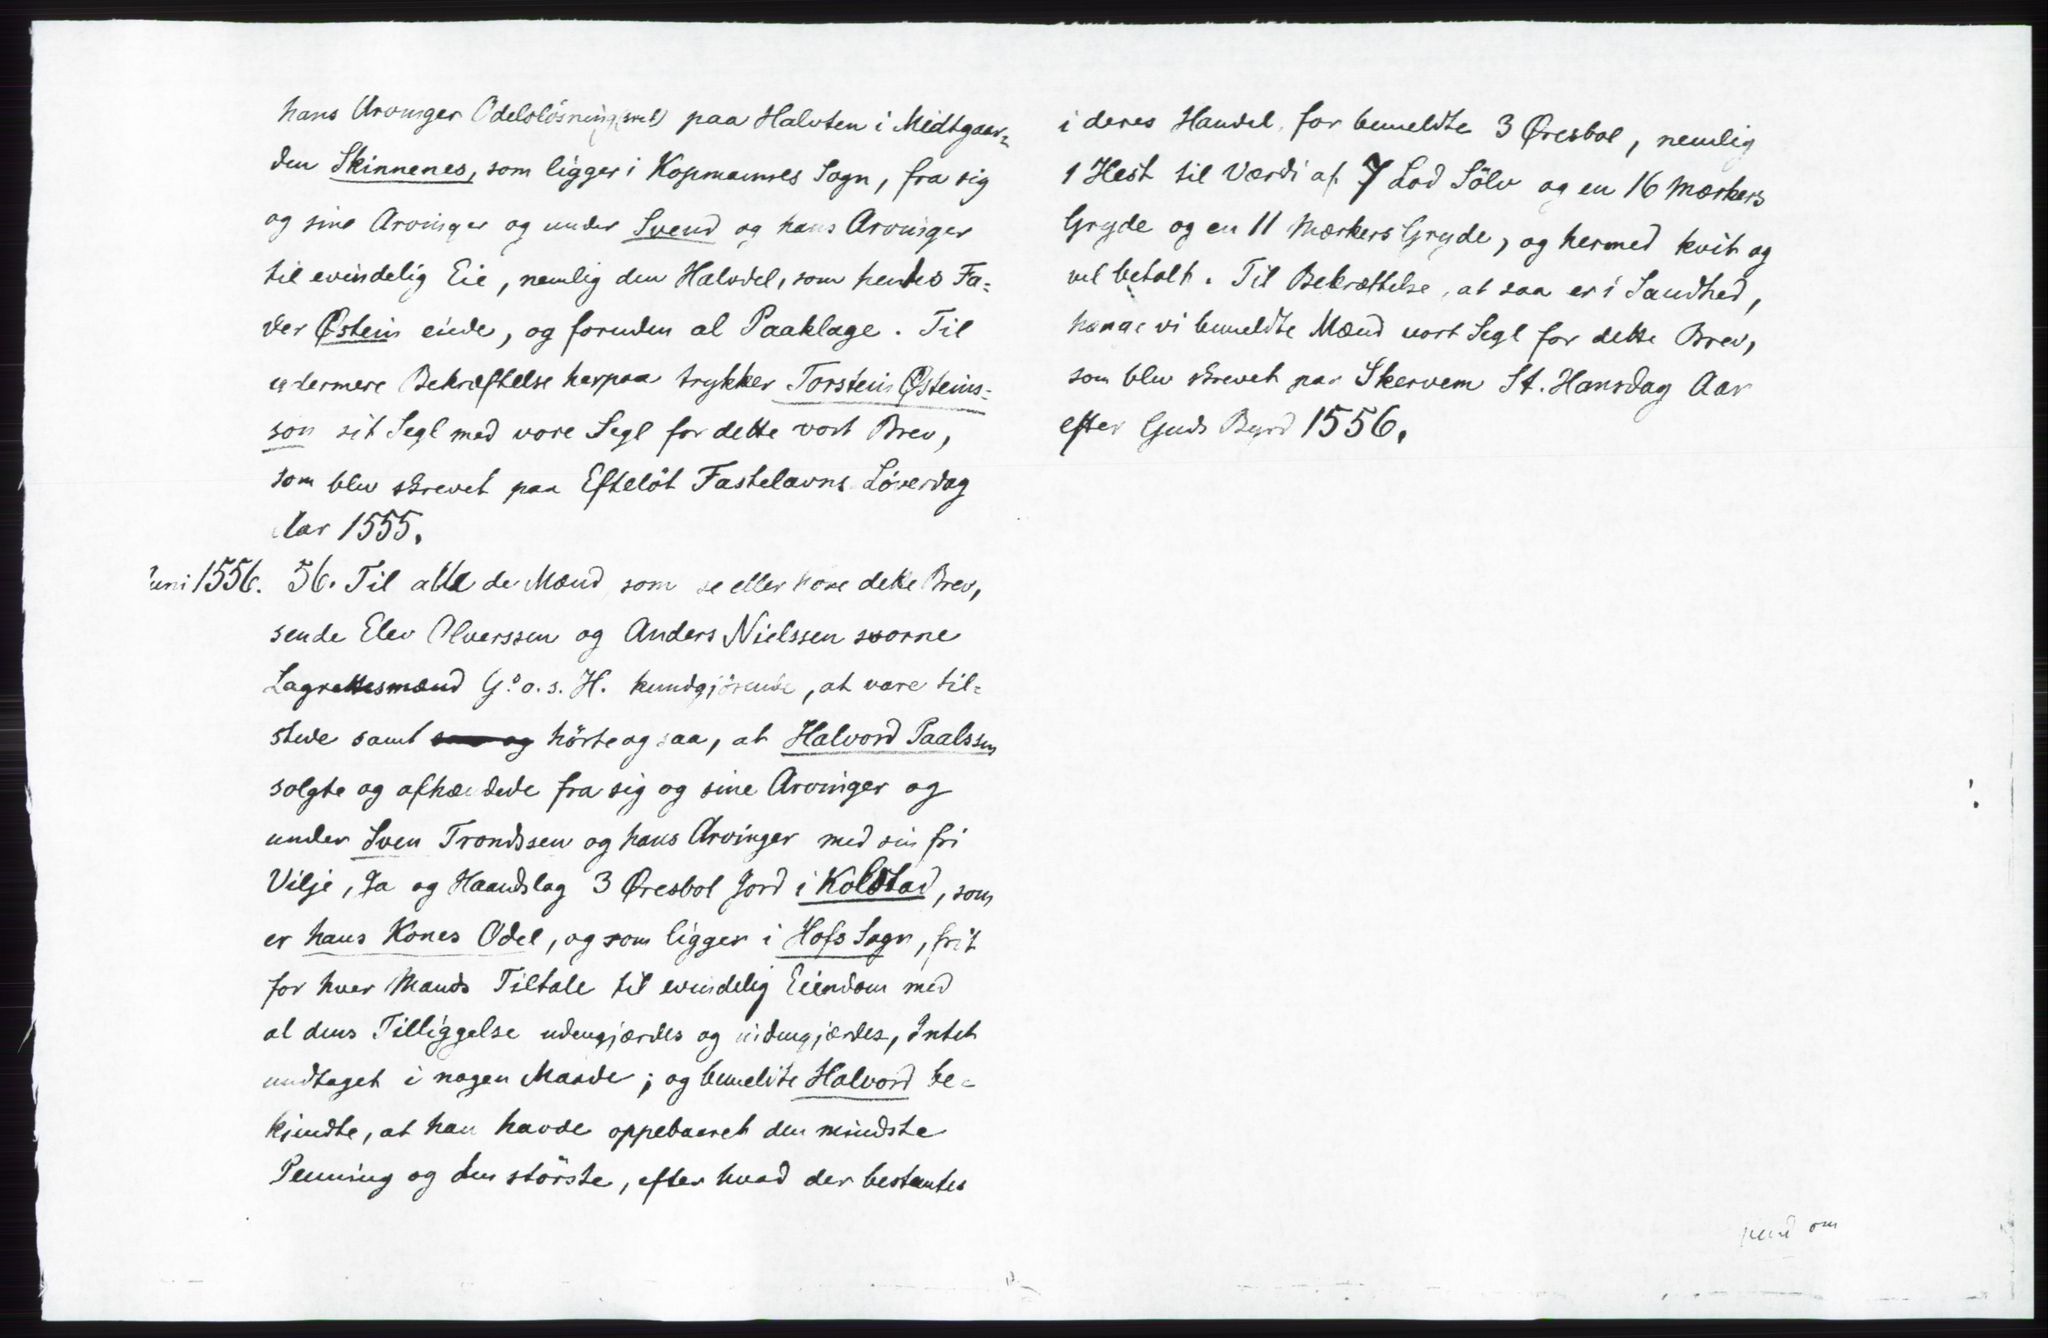 hans Arvinger Odelsløsning(sret) paa Halvten i Midtgaar-
den Skinnenes, som ligger i Kopmannes Sogn, fra sig
og sine Arvinger og under Svend og hans Arvinger
til evindelig Eie, nemlig den Halvdel, som hendes Fa-
der Østein eiede, og foruden al Paaklage. Til
ydermere Bekræftelse herpaa trykker Torstein Østeins-
son sit Segl med vore Segl for dette vort Brev,
som blev skrevet paa Efteløt Fastelavns Løverdag
Aar 1555.
Juni 1556. 56. Til alle de Mænd som se eller høre dette Brev,
sende Elev Olverssen og Anders Nielssen svorne
Lagrettesmænd G. o. s. H. kundgjørende, at vare til-
stede samt hörte og saa, at Halvord Paalssen
solgte og afhændede fra sig og sine Arvinger og
under Sven Trondssen og hans Arvinger med sin fri
Vilje, Ja og Haandslag 3 Øresbol Jord i Kolstad, som
er hans Kones Odel, og som ligger i Hofs Sogn, frit
for hver Mands Tiltale til evindelig Eiendom med
al dens Tilliggelse udengjærdes og indengjærdes, Intet
undtaget i nogen Maade; og bemeldte Halvord be-
kjendte, at han havde oppebaaret den mindste
Penning og den störste, efter hvad der bestemtes
i deres Handel, for bemeldte 3 Øresbol, nemlig
1 Hest til Værdi af 7 Lod Sölv og en 16 Mærkers
Gryde og en 11 Mærkers Gryde, og hermed kvit og
vel betalt. Til Bekræftelse, at saa er i Sandhed,
hænge vi bemeldte Mænd vort Segl for dette Brev,
som blev skrevet paa Skervem St. Hansdag Aar
efter Guds Byrd 1556.
om